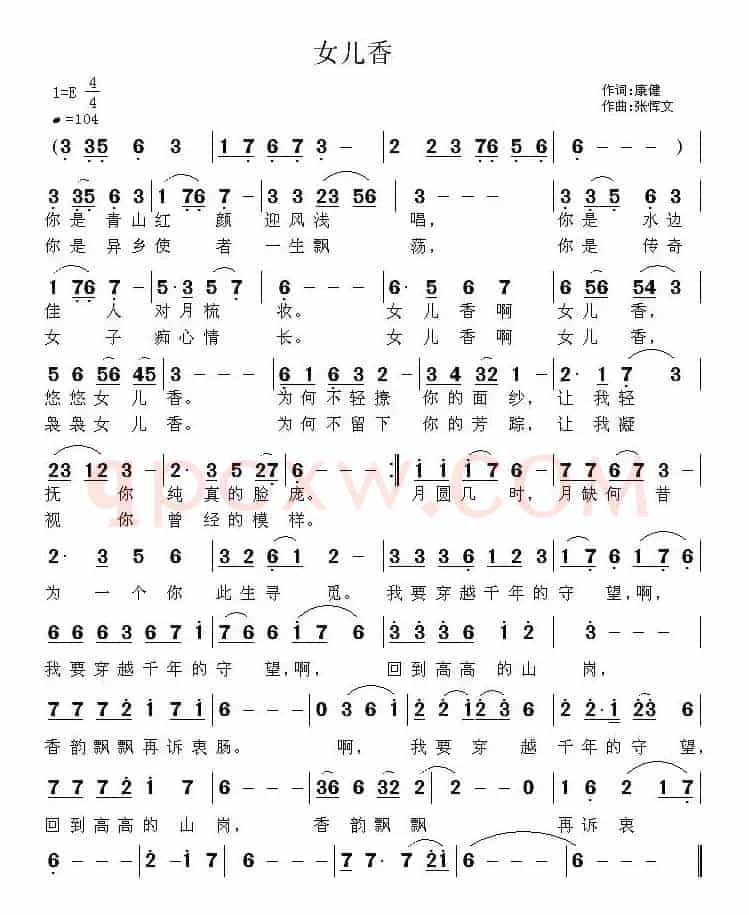 女儿香
1=E 4/4
作词:康健
♩=104
作曲:张恽文
(3 35 6 3 | 1 7 6 7 3 - | 2 2 3 76 5 6 | 6 - - )
3 35 6 3 | 1 76 7 - | 3 3 3 23 56 | 3 - - - | 3 3 5 6 3
你是青山红颜迎风浅唱,你是水边
你是异乡使者一生飘荡,你是传奇
1 76 7 - | 5·3 5 7 | 6 - - - | 6· 5 6 7 | 6 56 54 3
佳人对月梳妆。女儿香啊女儿香,
女子痴心情长。女儿香啊女儿香,
5 6 56 45 | 3 - - - | 6 1 6 3 2 | 3 4 32 1 | 2· 1 7 3
悠悠女儿香。为何不轻撩你的面纱,让我轻
袅袅女儿香。为何不留下你的芳踪,让我凝
23 12 3 - | 2· 3 5 27 | 6 - - - :| i i i 7 6 | 7 7 6 7 3 -
抚你纯真的脸庞。月圆几时,月缺何昔
视你曾经的模样。
qpcxw.com
2· 3 5 6 | 3 2 6 1 2 - | 3 3 3 6 1 2 3 | 1 7 6 1 7 6
为一个你此生寻觅。我要穿越千年的守望,啊,
6 6 6 3 6 7 i | 7 6 6 i 7 6 | 3 3 3 6 i 2 | 3 - - -
我要穿越千年的守望,啊,回到高高的山岗,
7 7 7 2 i 7 i | 6 - - - | 0 3 6 i | 2 2 i2 3 | 2· i 23 6
香韵飘飘再诉衷肠。啊,我要穿越千年的守望,
7 7 7 2 i 7 | 6 - - - | 36 6 32 2 | 2 - - 0 | 1 6 2 1 7
回到高高的山岗,香韵飘飘再诉衷
6 - - - | 2 - i 7 | 6 - - - | 7 7· 7 2i | 6 - - - | 6 - - - ‖